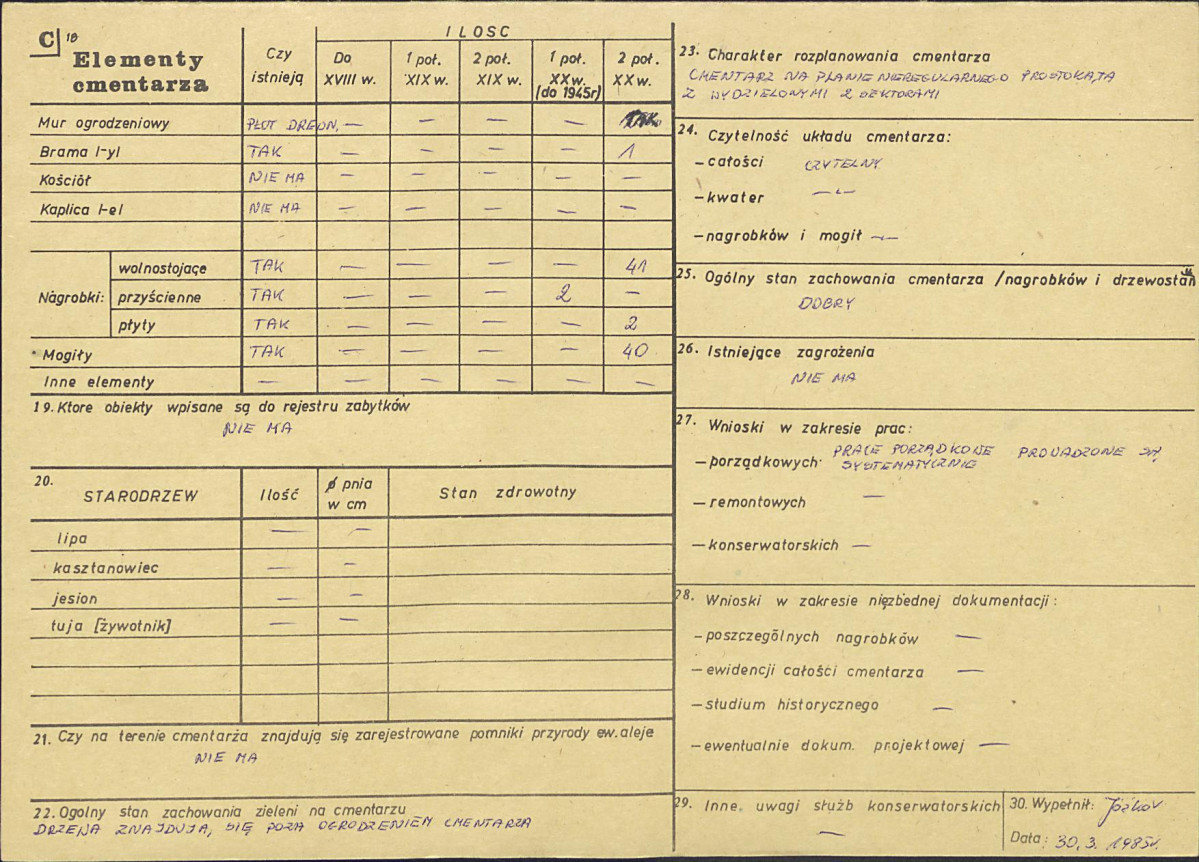 C 18 Elementy cmentarza
Czy istnieją
ILOSC
Do XVIII w.
1 poł. XIX w.
2 poł. XIX w.
1 poł. XX w. (do 1945r)
2 poł. XX w.
Mur ogrodzeniowy PŁOT DREWN. — — — —
Brama /-y/ TAK — — — — 1
Kościół NIE MA — — — — —
Kaplica /-e/ NIE MA — — — — —
Nagrobki: wolnostojące TAK — — — — 41
przyścienne TAK — — — 2 —
płyty TAK — — — — 2
Mogiły TAK — — — — 40
Inne elementy — — — — — —
19. Ktore obiekty wpisane są do rejestru zabytków
NIE MA
20. STARODRZEW Ilość ø pnia w cm Stan zdrowotny
lipa — —
kasztanowiec — —
jesion — —
tuja [żywotnik] — —
21. Czy na terenie cmentarza znajdują się zarejestrowane pomniki przyrody ew. aleje
NIE MA
22. Ogolny stan zachowania zieleni na cmentarzu
DRZEWA ZNAJDUJĄ SIĘ POZA OGRODZENIEM CMENTARZA
23. Charakter rozplanowania cmentarza
CMENTARZ NA PLANIE NIEREGULARNEGO PROSTOKĄTA
Z WYDZIELONYMI 2 SEKTORAMI
24. Czytelność układu cmentarza:
— całości CZYTELNY
— kwater —"—
— nagrobków i mogił —"—
25. Ogólny stan zachowania cmentarza /nagrobków i drzewostanu
DOBRY
26. Istniejące zagrożenia
NIE MA
27. Wnioski w zakresie prac:
— porządkowych PRACE PORZĄDKOWE PROWADZONE SĄ
SYSTEMATYCZNIE
— remontowych —
— konserwatorskich —
28. Wnioski w zakresie nięzbednej dokumentacji:
— poszczególnych nagrobków —
— ewidencji całości cmentarza —
— studium historycznego —
— ewentualnie dokum. projektowej —
29. Inne uwagi służb konserwatorskich
—
30. Wypełnił:
Data: 30. 3. 1985r.